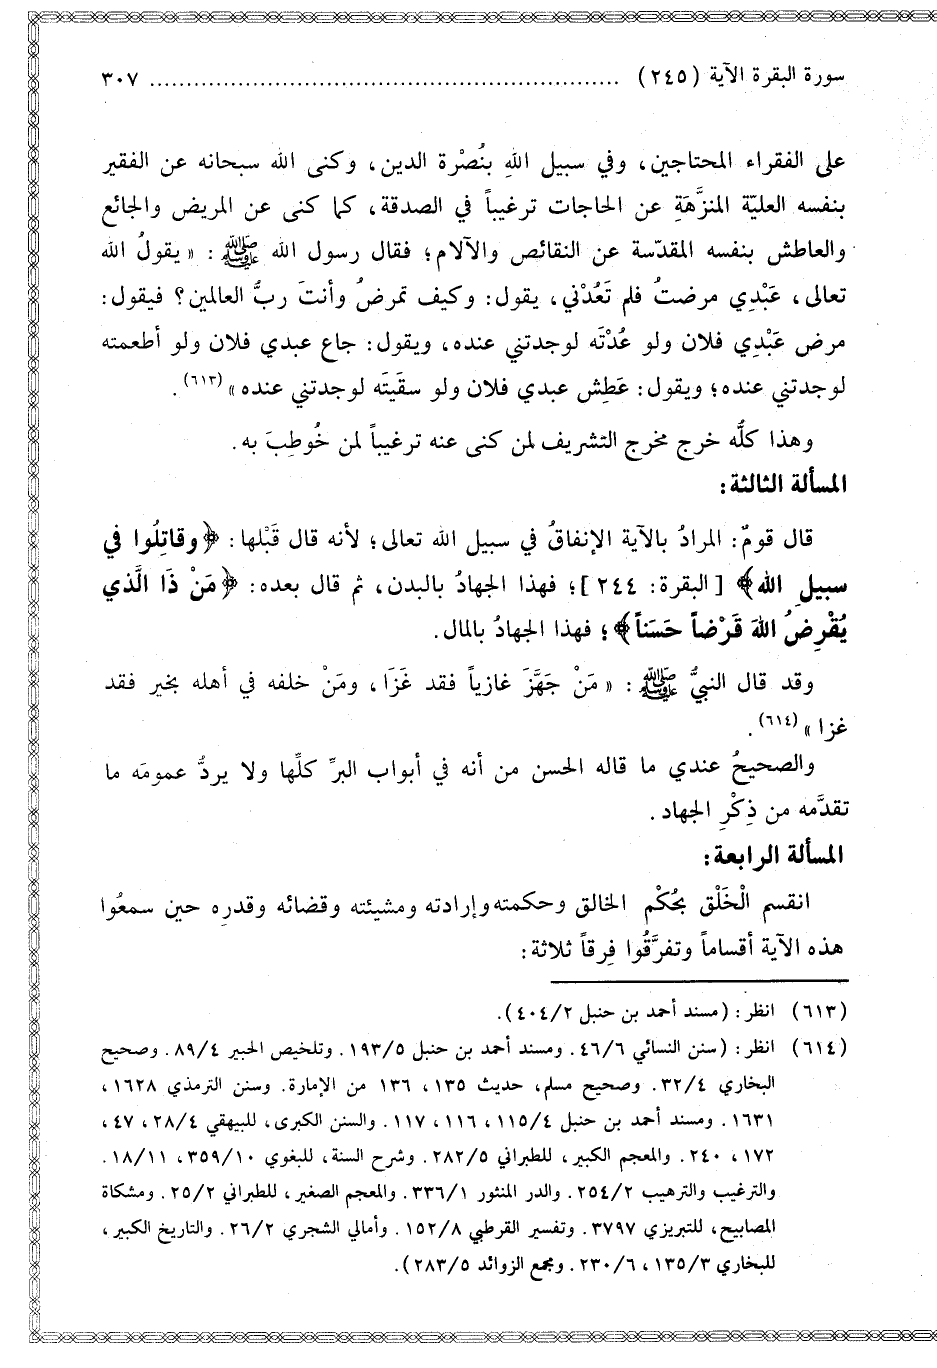 سورة البقرة الآية (٢٤٥) ................................................................ ٣٠٧
على الفقراء المحتاجين، وفي سبيل اللهِ بنُصْرة الدين، وكنى الله سبحانه عن الفقير
بنفسه العليّة المنزَّهَةِ عن الحاجات ترغيباً في الصدقة، كما كنى عن المريض والجائع
والعاطش بنفسه المقدّسة عن النقائص والآلام؛ فقال رسول الله ﷺ : « يقولُ الله
تعالى، عَبْدِي مرضتُ فلم تَعُدْني، يقول: وكيف تمرضُ وأنتَ ربُّ العالمين؟ فيقول:
مرض عَبْدِي فلان ولو عُدْتَه لوجدتني عنده، ويقول: جاع عبدي فلان ولو أطعمته
لوجدتني عنده؛ ويقول: عَطِش عبدي فلان ولو سقَيتَه لوجدتني عنده» (٦١٣) .
وهذا كلُّه خرج مخرج التشريف لمن كنى عنه ترغيباً لمن خُوطِبَ به.
المسألة الثالثة:
قال قومٌ: المرادُ بالآية الإنفاقُ في سبيل الله تعالى؛ لأنه قال قَبْلها: ﴿وقاتِلُوا في
سبيلِ الله﴾ [البقرة: ٢٤٤]؛ فهذا الجهادُ بالبدن، ثم قال بعده: ﴿مَنْ ذَا الَّذي
يُقْرِضُ اللهَ قَرْضاً حَسَناً﴾؛ فهذا الجهادُ بالمال.
وقد قال النبيُّ ﷺ : « مَنْ جَهَّزَ غازياً فقد غَزَا، ومَنْ خلفه في أهله بخير فقد
غزا » (٦١٤) .
والصحيحُ عندي ما قاله الحسن من أنه في أبواب البرِّ كلِّها ولا يردُّ عمومَه ما
تقدَّمه من ذِكْرِ الجهاد.
المسألة الرابعة:
انقسم الْخَلْق بحُكْم الخالق وحكمته وإرادته ومشيئته وقضائه وقدرِه حين سمعُوا
هذه الآية أقساماً وتفرَّقُوا فِرقاً ثلاثة:
(٦١٣) انظر: (مسند أحمد بن حنبل ٤٠٤/٢).
(٦١٤) انظر: (سنن النسائي ٤٦/٦. ومسند أحمد بن حنبل ١٩٣/٥. وتلخيص الحبير ٨٩/٤. وصحيح
البخاري ٣٢/٤. وصحيح مسلم، حديث ١٣٥، ١٣٦ من الإمارة. وسنن الترمذي ١٦٢٨،
١٦٣١. ومسند أحمد بن حنبل ١١٥/٤، ١١٦، ١١٧. والسنن الكبرى، للبيهقي ٢٨/٤، ٤٧،
١٧٢، ٢٤٠. والمعجم الكبير، للطبراني ٢٨٢/٥. وشرح السنة، للبغوي ٣٥٩/١٠، ١٨/١١.
والترغيب والترهيب ٢٥٤/٢. والدر المنثور ٣٣٦/١. والمعجم الصغير، للطبراني ٢٥/٢. ومشكاة
المصابيح، للتبريزي ٣٧٩٧. وتفسير القرطبي ١٥٢/٨. وأمالي الشجري ٢٦/٢. والتاريخ الكبير،
للبخاري ١٣٥/٣، ٢٣٠/٦. ومجمع الزوائد ٢٨٣/٥).